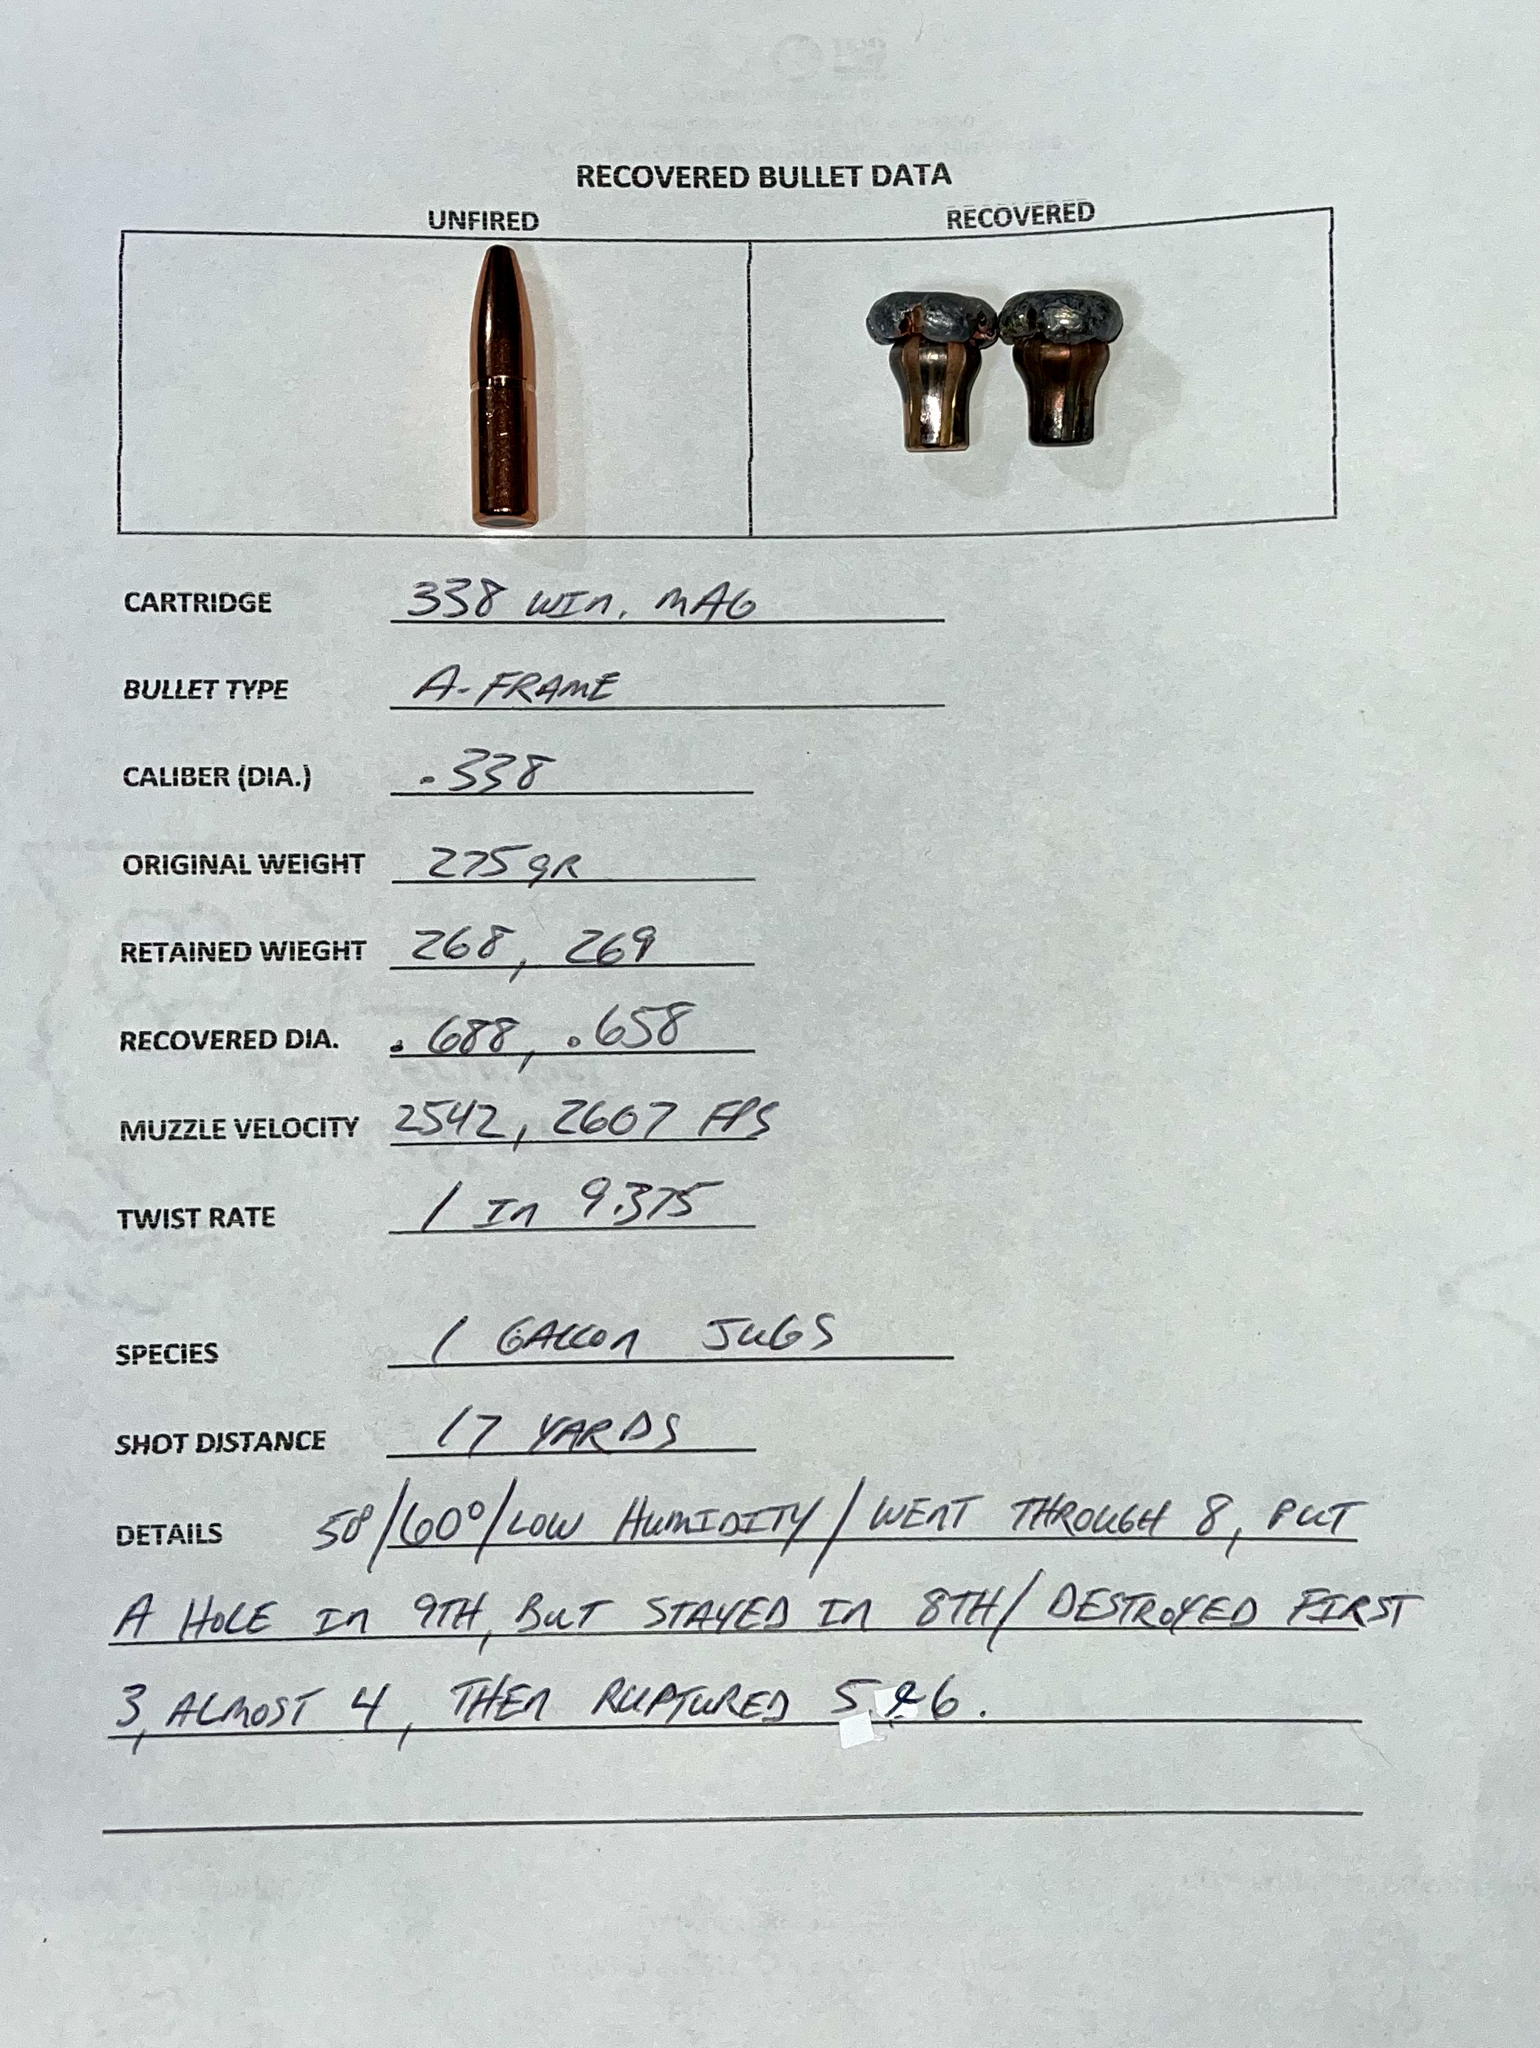 RECOVERED BULLET DATA
UNFIRED RECOVERED
CARTRIDGE 338 WIN. MAG
BULLET TYPE A-FRAME
CALIBER (DIA.) .338
ORIGINAL WEIGHT 275 GR
RETAINED WIEGHT 268, 269
RECOVERED DIA. .688, .658
MUZZLE VELOCITY 2542, 2607 FPS
TWIST RATE 1 IN 9.375
SPECIES 1 GALLON JUGS
SHOT DISTANCE 17 YARDS
DETAILS 50°/60°/LOW HUMIDITY/WENT THROUGH 8, PUT
A HOLE IN 9TH, BUT STAYED IN 8TH/ DESTROYED FIRST
3, ALMOST 4, THEN RUPTURED 5 & 6.